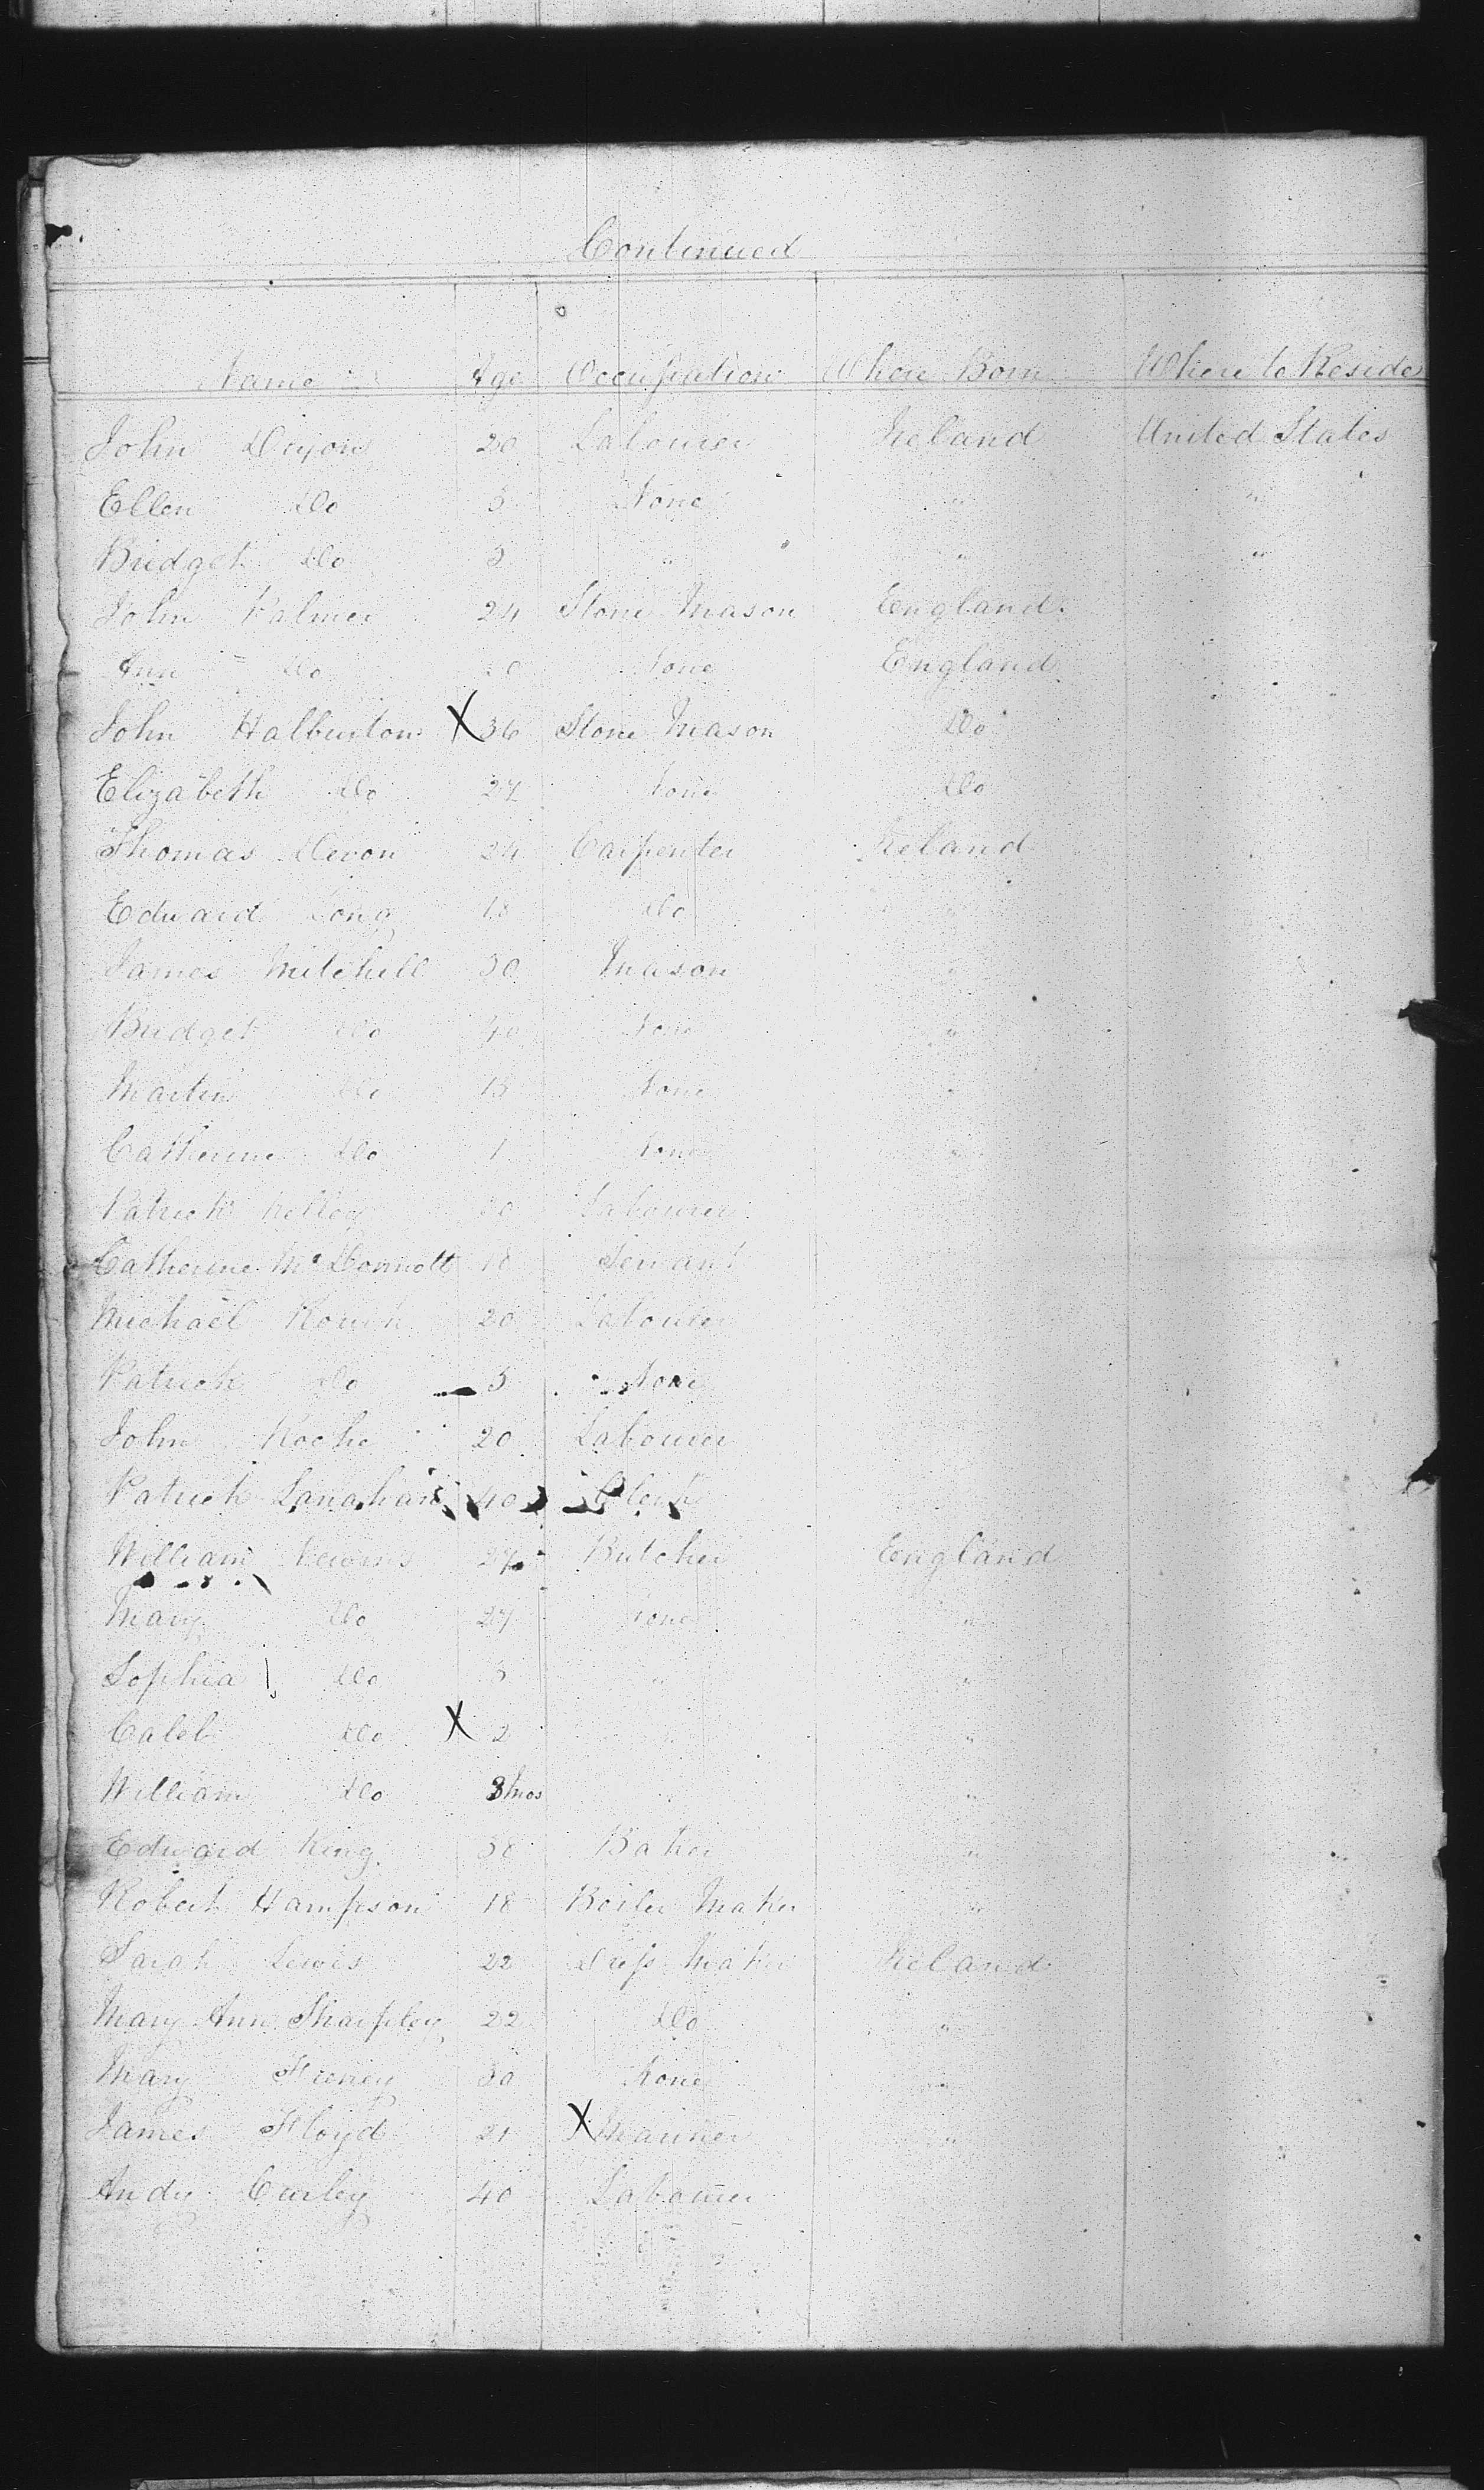 Continued
Name Age Occupation Where Born Where to Reside
John 20 Labourer Ireland United States
Ellen Do 3 None " "
Bridget Do 3 " " "
John Palmer 24 Stone Mason England
Ann Do None England
John Halburton X 36 Stone Mason Do
Elizabeth Do 27 None Do
Thomas Devon 24 Carpenter Ireland
Edward Long 18 Do
James Mitchell 30 Mason "
Bridget Do 40 None "
Martin Do 13 None "
Catherine Do 1 None "
Patrick Kelley Labourer
Catherine McDermott 18 Servant
Michael 20 Labourer
Patrick Do 3 None
John Roche 20 Labourer
Patrick Lanahan 40 Clerk
William 27 Butcher England
Mary Do 27 None "
Sophia Do 3 " "
Caleb Do X 2 "
William Do 8 Mos "
Edward King 30 Baker "
Robert Hampson 18 Boiler Maker "
Sarah Lewis 22 Dress Maker Ireland
Mary Ann Sharpley 22 Do "
Mary 30 None "
James Floyd 21 X Mariner "
Andy Curley 40 Labourer